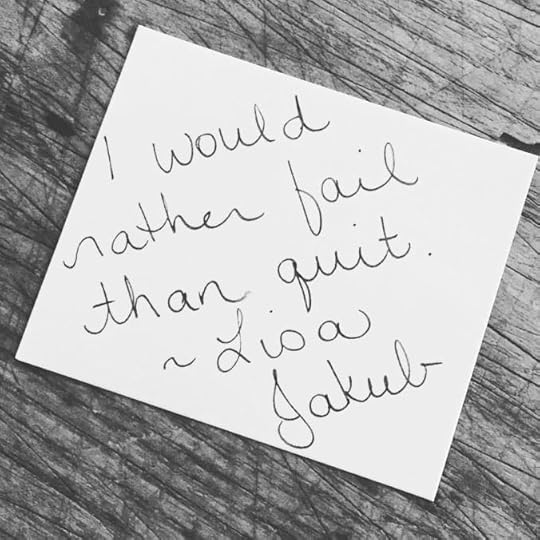 I would
rather fail
than quit.
~ Lisa
Jakub